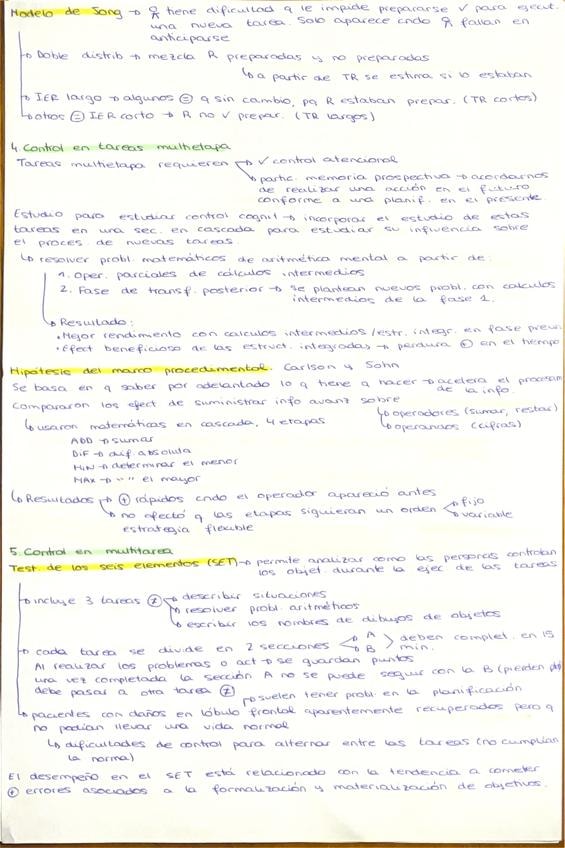 Modelo de Jong → tiene dificultad q le impide prepararse ✓ para ejecut.
una nueva tarea. Solo aparece cndo fallan en
anticiparse
↳ Doble distrib → mezcla R preparadas y no preparadas
↳ a partir de TR se estima si lo estaban
↳ IER largo → algunos = q sin cambio, pq R estaban prepar. (TR cortos)
↳ otros = IER corto → R no ✓ prepar. (TR largos)
4. Control en tareas multietapa
Tareas multietapa requieren → ✓ control atencional
↳ partic. memoria prospectiva → acordarnos
de realizar una acción en el futuro
conforme a una planif. en el presente
Estudio para estudiar control cognit → incorporar el estudio de estas
tareas en una sec. en cascada para estudiar su influencia sobre
el proces. de nuevas tareas.
↳ resolver probl. matemáticos de aritmética mental a partir de:
1. Oper. parciales de cálculos intermedios
2. Fase de transf. posterior → se plantean nuevos probl. con cálculos
intermedios de la fase 1.
↳ Resultado:
• Mejor rendimiento con calculos intermedios/estr. integr. en fase previ
• Efect beneficioso de las estruct. integradas → perdura + en el tiempo
Hipótesis del marco procedimental. Carlson y Sohn
Se basa en q saber por adelantado lo q tiene q hacer → acelera el procesam
de la info.
Compararon los efect de suministrar info avanz sobre
↳ operadores (sumar, restar)
↳ operandos (cifras)
↳ usaron matemáticas en cascada, 4 etapas
ADD → sumar
DIF → dif. absoluta
MIN → determinar el menor
MAX → " " el mayor
↳ Resultados → + rápidos cndo el operador apareció antes
↳ no efectó q las etapas siguieran un orden < fijo
variable
estrategia flexible
5. Control en multitarea
Test de los seis elementos (SET) → permite analizar como las personas controlan
los objet. durante la ejec de las tareas
→ incluye 3 tareas ≠ → describir situaciones
→ resolver probl. aritméticos
↳ escribir los nombres de dibujos de objetos
→ cada tarea se divide en 2 secciones < A B > deben complet. en 15
min.
Al realizar los problemas o act → se guardan puntos
una vez completada la sección A no se puede seguir con la B (pierden pts)
debe pasar a otra tarea ≠
→ suelen tener probl. en la planificación
↳ pacientes con daños en lóbulo frontal aparentemente recuperados pero q
no podían llevar una vida normal
↳ dificultades de control para alternar entre las tareas (no cumplían
la norma)
El desempeño en el SET está relacionado con la tendencia a cometer
+ errores asociados a la formalización y materialización de objetivos.